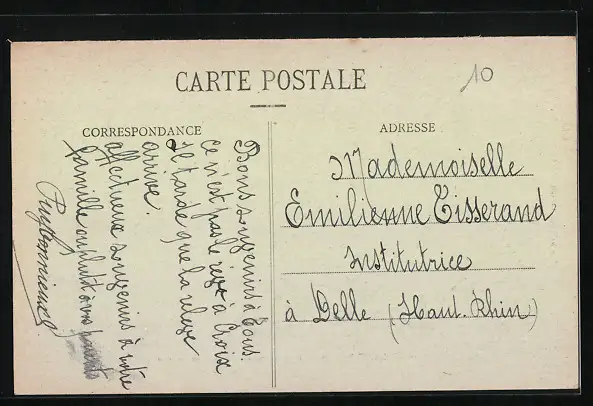 CARTE POSTALE
10
CORRESPONDANCE
ADRESSE
Bons souvenirs à tous.
ce n'est pas le rêve à Croix
Je tarde que la relève
arrive.
affectueux souvenirs à votre
famille ou plutôt à vos parents
Mademoiselle
Emilienne Tisserand
Institutrice
à Delle (Haut-Rhin)